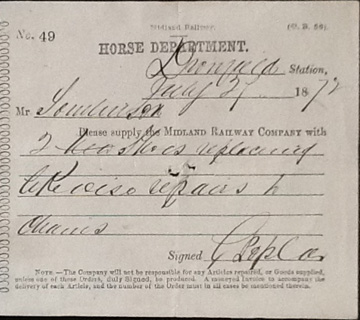 Midland Railway.
No. 49
(C. B. 86)
HORSE DEPARTMENT.
Dronfield Station,
July 27 1872
Mr Tomlinson
Please supply the MIDLAND RAILWAY COMPANY with
2 New Shoes replacing
repairs to
Chains
Signed
NOTE.—The Company will not be responsible for any Articles repaired, or Goods supplied,
unless one of these Orders, duly Signed, be produced. A monthly Invoice to accompany
the delivery of each Article, and the number of the Order must in all cases be mentioned therein.